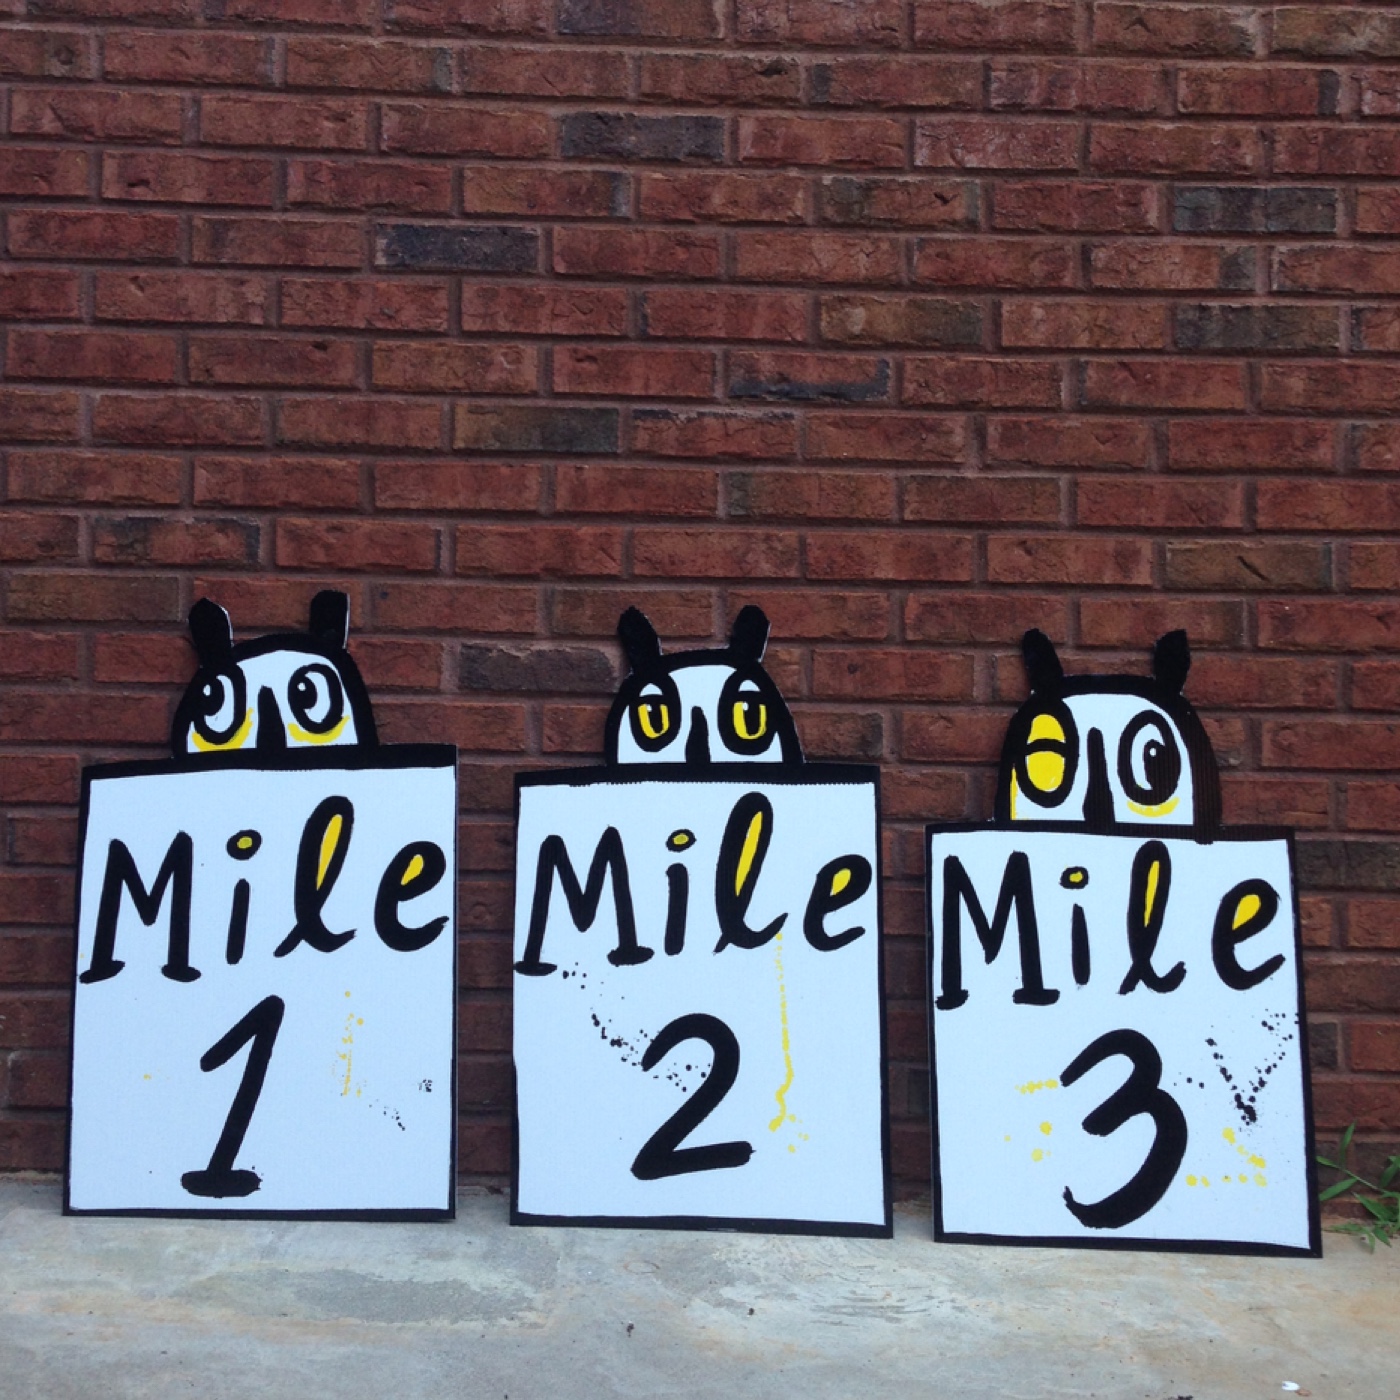 Mile
1
Mile
2
Mile
3